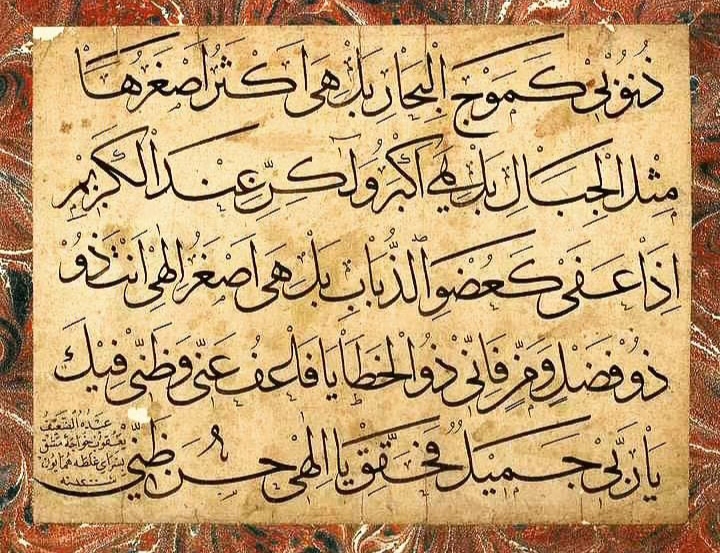 ذُنُوبِي كَمَوْجِ الْبِحَارِ بَلْ هِيَ اَكْثَرُ اَصْغَرُهَا
مِثْلُ الْجِبَالِ بَلْ هِيَ اَكْبَرُ وَلٰكِنْ عِنْدَ الْكَرِيْمِ
اِذَا عَفَى كَعُضْوِ الذُّبَابِ بَلْ هِيَ اَصْغَرُ اِلٰهِي اَنْتَ ذُوْ
ذُوْ فَضْلٍ وَمَنٍّ فَاِنِّيْ ذُو الْخَطَايَا فَاعْفُ عَنِّيْ وَظَنِّيْ فِيْكَ
يَا رَبِّيْ جَمِيْلٌ فَحَقِّقْ يَا اِلٰهِيْ حُسْنَ ظَنِّيْ
عبده الضعيف
خواجه مشق
بسراي غلطه همايون